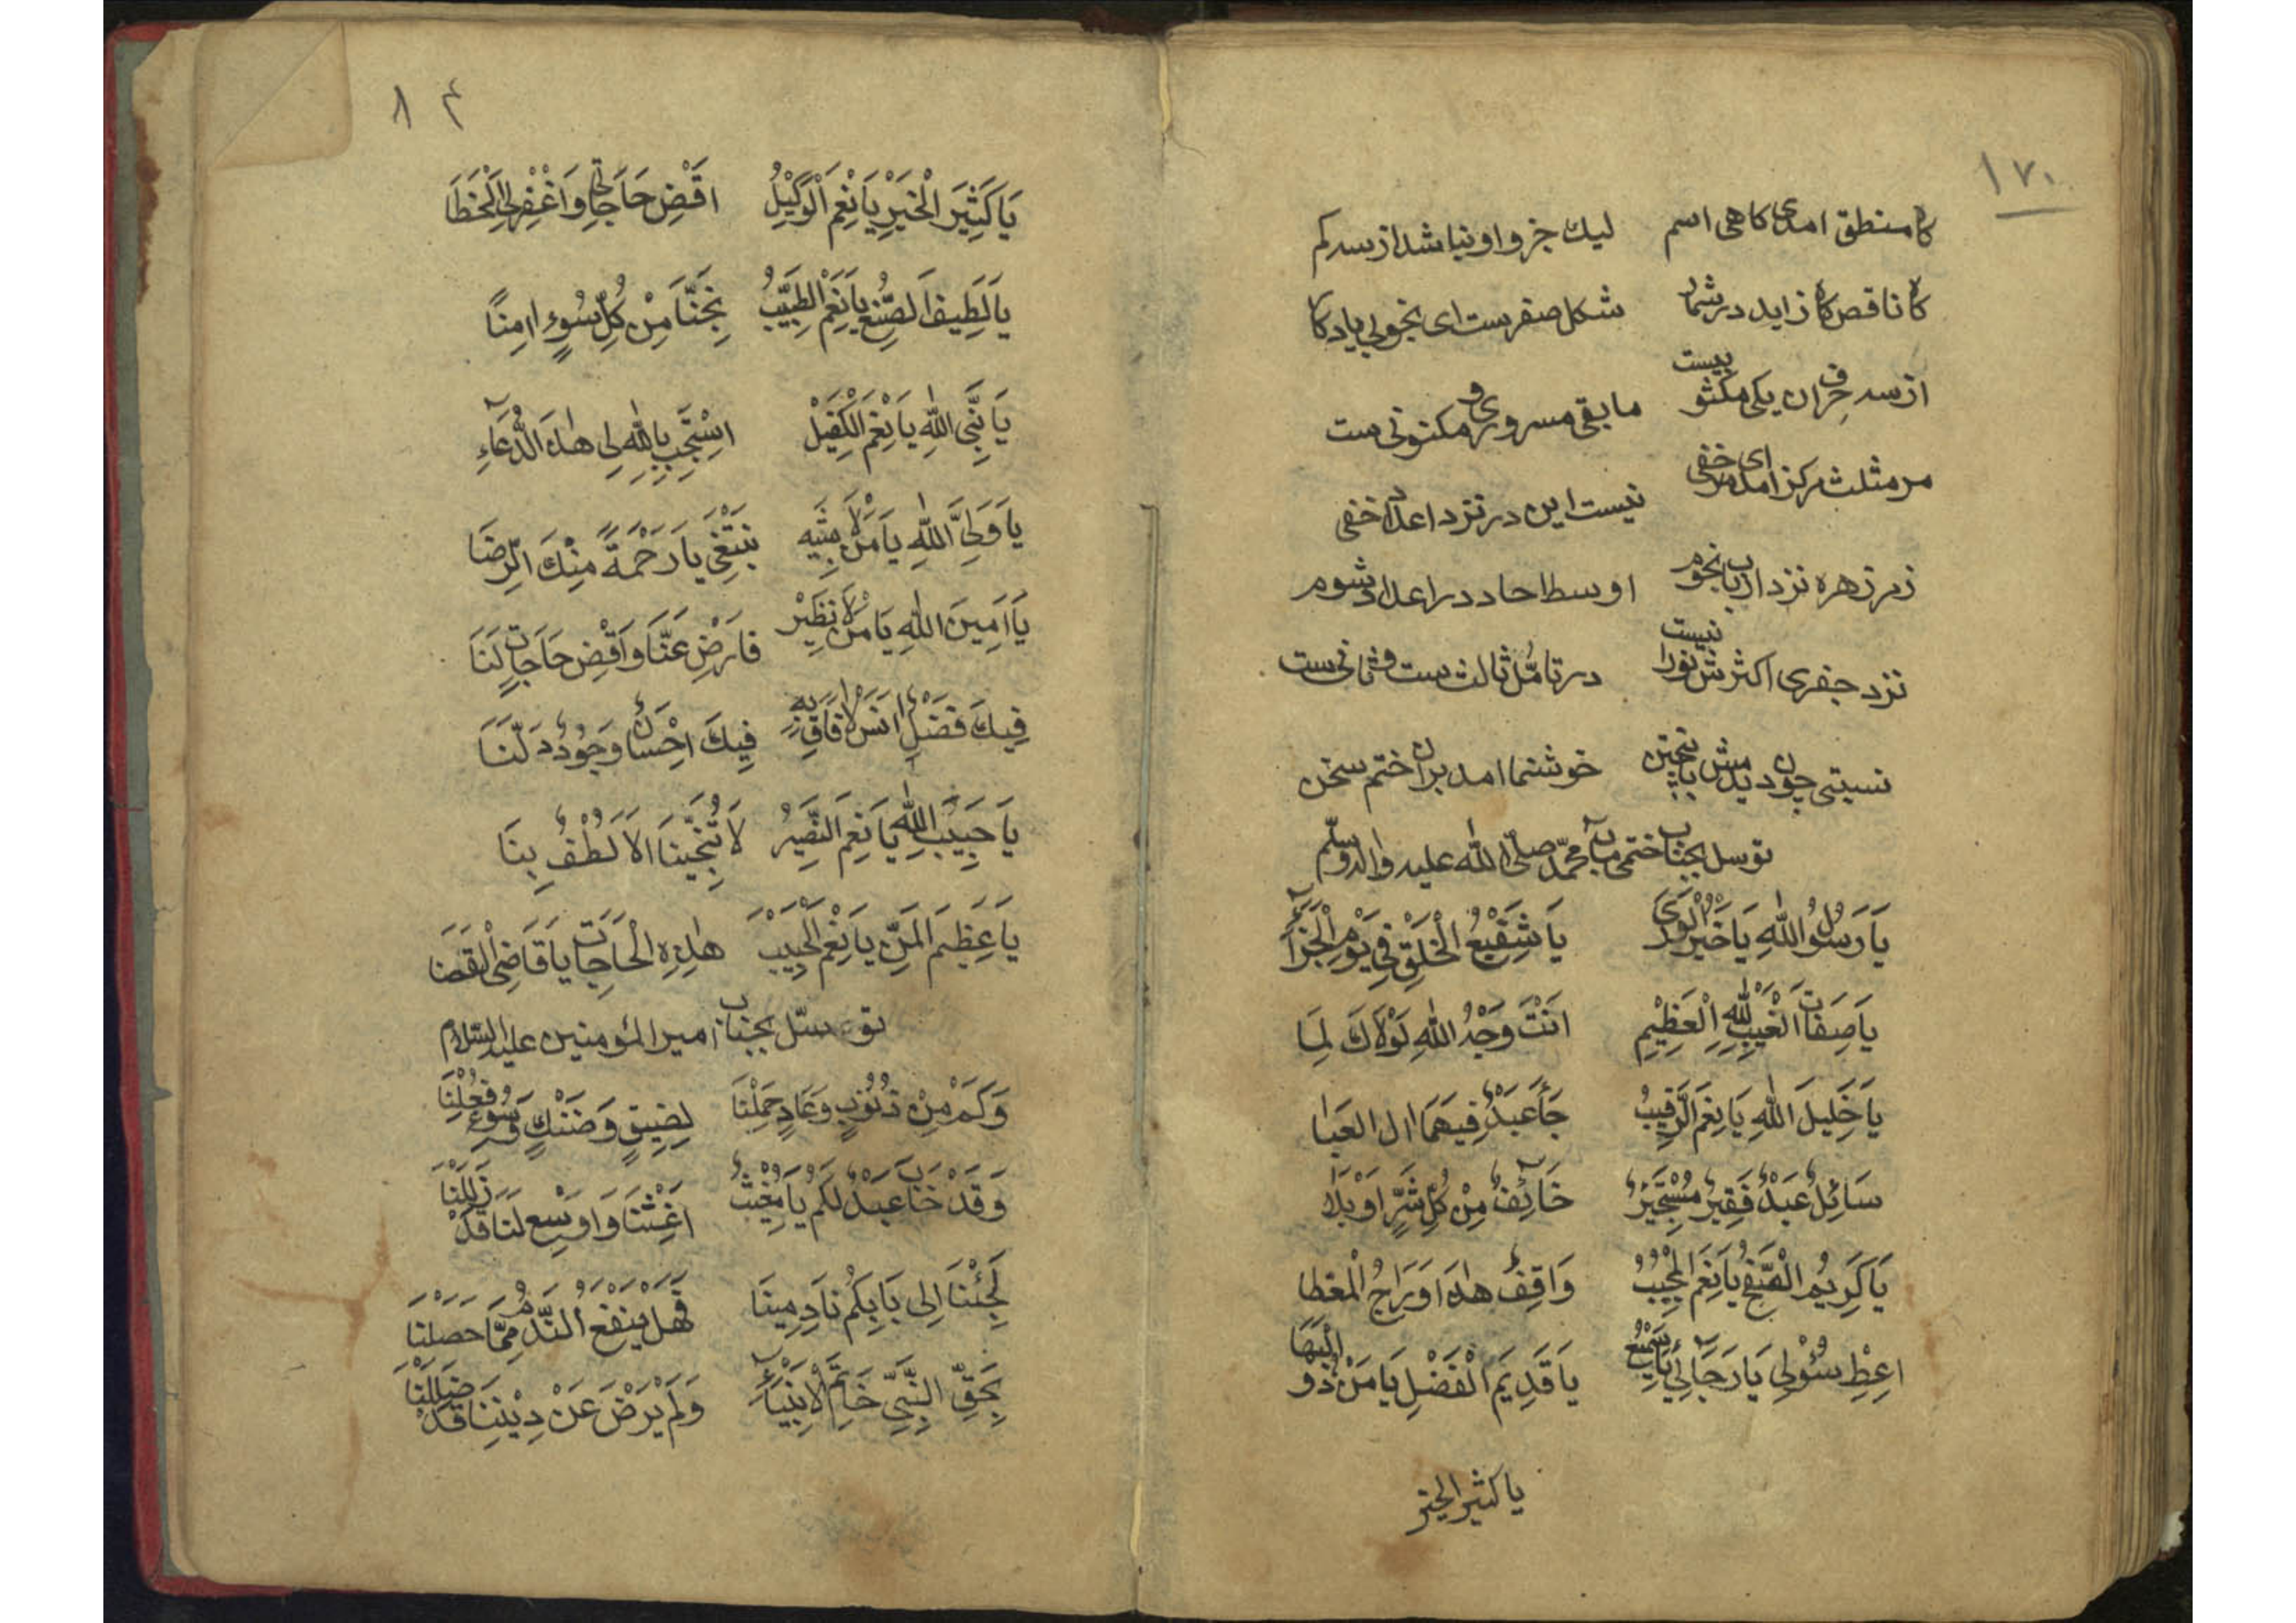 ۱۷۰
کاه منطق امدی کاهی اسم لیک جزو او نباشد از سه کم
کاه ناقص کاه زاید در شمار شکل صفرست ای نجولی یاد کار
از سه حرف ان یکی مکتو بیست مابقی مسروری و مکتونی ست
مر مثلث مرکز امد ای خفی نیست این در نزد اعداد خفی
زمر زهره نزد ارباب نجوم اوسط احاد در اعداد شوم
نزد جفری اکثرش نورا نیست در تامّل ثالث ست و ثانی ست
نسبتی چون دیدمش با پنجتن خوشنما امد بران ختم سخن
توسل بجناب ختمی ماب محمّد صلّی الله علیه واله وسلّم
يَا رَسُولُ اللهِ يَا خَيْرَ الْوَرَى يَا شَفِيْعُ الْخَلْقِ فِي يَوْمِ الْجَزَآءِ
يَا صِفَاتَ الْغَيْبِ لِلّٰهِ الْعَظِيْمِ اَنْتَ وَجْهُ اللهِ لَوْلَاكَ لِمَا
يَا خَلِيلَ اللهِ يَا نِعْمَ الرَّقِيبُ جَأَ عَبْدٌ فِيهِمَا ال العَبَا
سَائِلٌ عَبْدٌ فَقِيرٌ مُسْتَجِيرٌ خَآئِفٌ مِنْ كُلِّ شَرٍّ اَوْ بَلَا
يَا كَرِيْمَ الصَّفْحِ يَا نِعْمَ الْمُجِيْبُ وَاقِفٌ هٰذَا وَرَاجُ الْمعْطا
اعِطِ سُؤْلِی يَا رَجَآئِي يَا سَمِيْعُ يَا قَدِيمَ الْفَضْلِ يَا مَنْ ذُو الْبَهَا
یا کثیر الخیر
۸۴
يَا كَثِيْرَ الْخَيْرِ يَا نِعْمَ الْوَكِيْلُ اقْضِ حَاجَاتِي وَاغْفِرْ لِي الْخَطَا
يَا لَطِيفَ الصُّنْعِ يَا نِعْمَ الطَّبِيْبُ نَجِّنَا مِنْ كُلِّ سُوءٍ ا امِنًا
يَا نَّبِيَّ اللهِ يَا نِعْمَ الْكَفِيْلْ اسْتَجِبْ بِاللهِ لِی هٰذَا الدُّعَآءِ
يَا وَلِيَّ اللهِ يَا مَنْ لَا شَبِيْه نَبْتَغِي يَا رَحْمَةً مِنْكَ الرِّضَا
يَا اَمِينَ اللهِ يَا مَنْ لَا نَظِيْر فَارْضِ عَنَّا وَاقْضِ حَاجَاتٍ لَنَا
فِيكَ فَضْلٌ اَنْسَ لَا فَاقَ بِهِ فِيكَ اِحْسَانٌ وَجُوْدٌ دَلَّنَا
يَا حَبِيْبَ اللهِ يَا نِعْمَ النَّصِيْرُ لَا تُنَجِّيْنَا الَا لُطْفٌ بِنَا
يَا عَظِيْمَ المَنِّ يَا نِعْمَ الْحَبِيْبَ هٰذِهِ الْحَاجَاتُ يَا قَاضِی الْقَضَا
توسّل بجناب امیر المؤمنین علیه السّلام
وَكَمْ مِنْ ذُنُوبٍ وَعَادٍ حَمَلْنَا لِضِيقٍ وَضَنْكٍ وَسُوءٍ فَعَلْنَا
وَقَدْ خَابَ عَبْدٌ لَكُمْ يَا مُغِيْثُ اَغِثْنَا وَاوسِع لَنَا قَدْ ذَلَلْنَا
لَجِئْنَا اِلَى بَابِكُمْ نَادِمِينَا فَهَلْ يَنْفَعُ النَّدْمُ مِمَّا حَصَلْنَا
بِحَقِّ النَّبِيِّ خَاتِمِ الْاَنْبِيَآءِ وَلَمْ يَرْضَ عَنْ دِيْنِنَا قَدْ ضَلَلْنَا